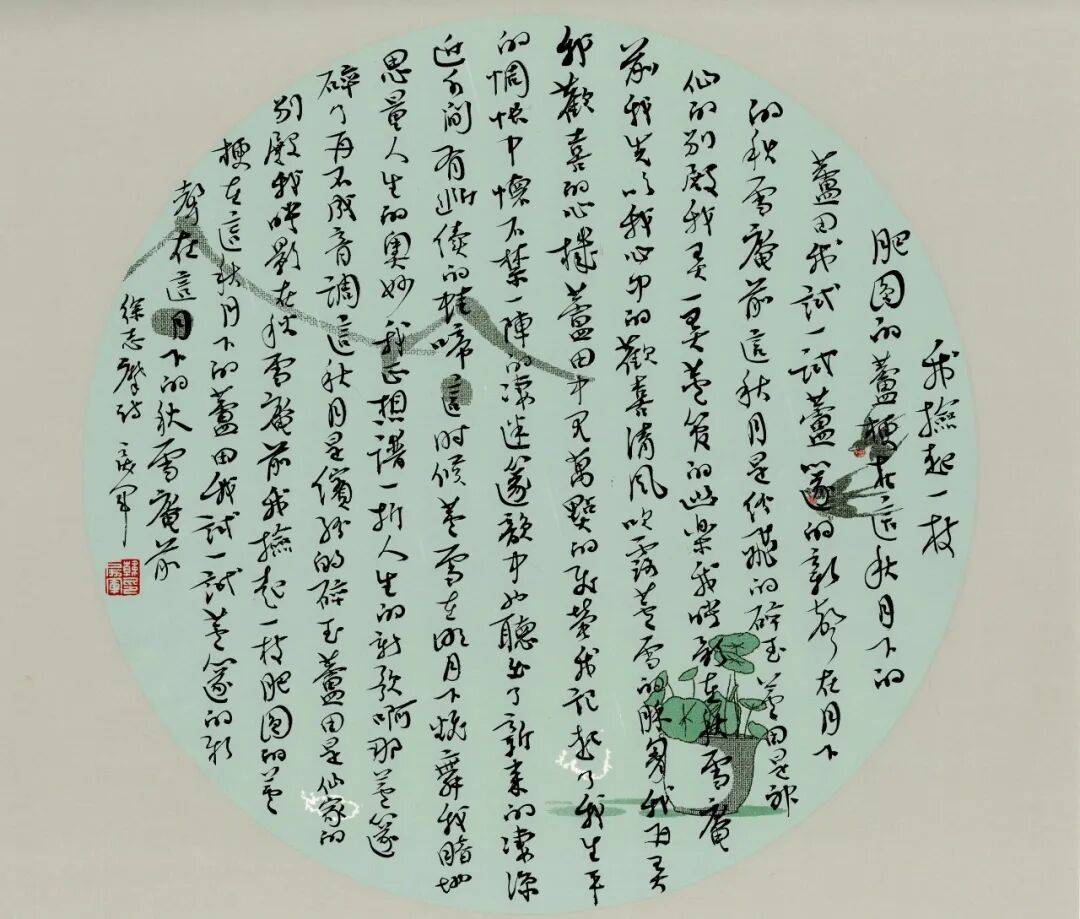 我撿起一枝
肥圓的蘆梗在這秋月下的
蘆田我試一試蘆篴的新聲在月下
的秋雪庵前這秋月是紛飛的碎玉芦田是神
仙的别殿我弄一弄芦管的幽樂我映影在秋雪庵
前我先吹我心中的歡喜清風吹露芦雪的酥胸我再弄
我歡喜的心機蘆田中見萬點的飛螢我記起了我生平
的惆悵中懷不禁一陣的凄迷篴韻中也聽出了新来的凄凉
近水間有断續的蛙啼這時候芦雪在明月下翻舞我暗地
思量人生的奥妙我正想譜一折人生的新歌啊那芦篴
碎了再不成音調這秋月是繽紛的碎玉蘆田是仙家的
别殿我映影在秋雪庵前我撿起一枝肥圓的芦
梗在這秋月下的蘆田我試一試芦篴的新
聲在這月下的秋雪庵前
徐志摩詩 軍